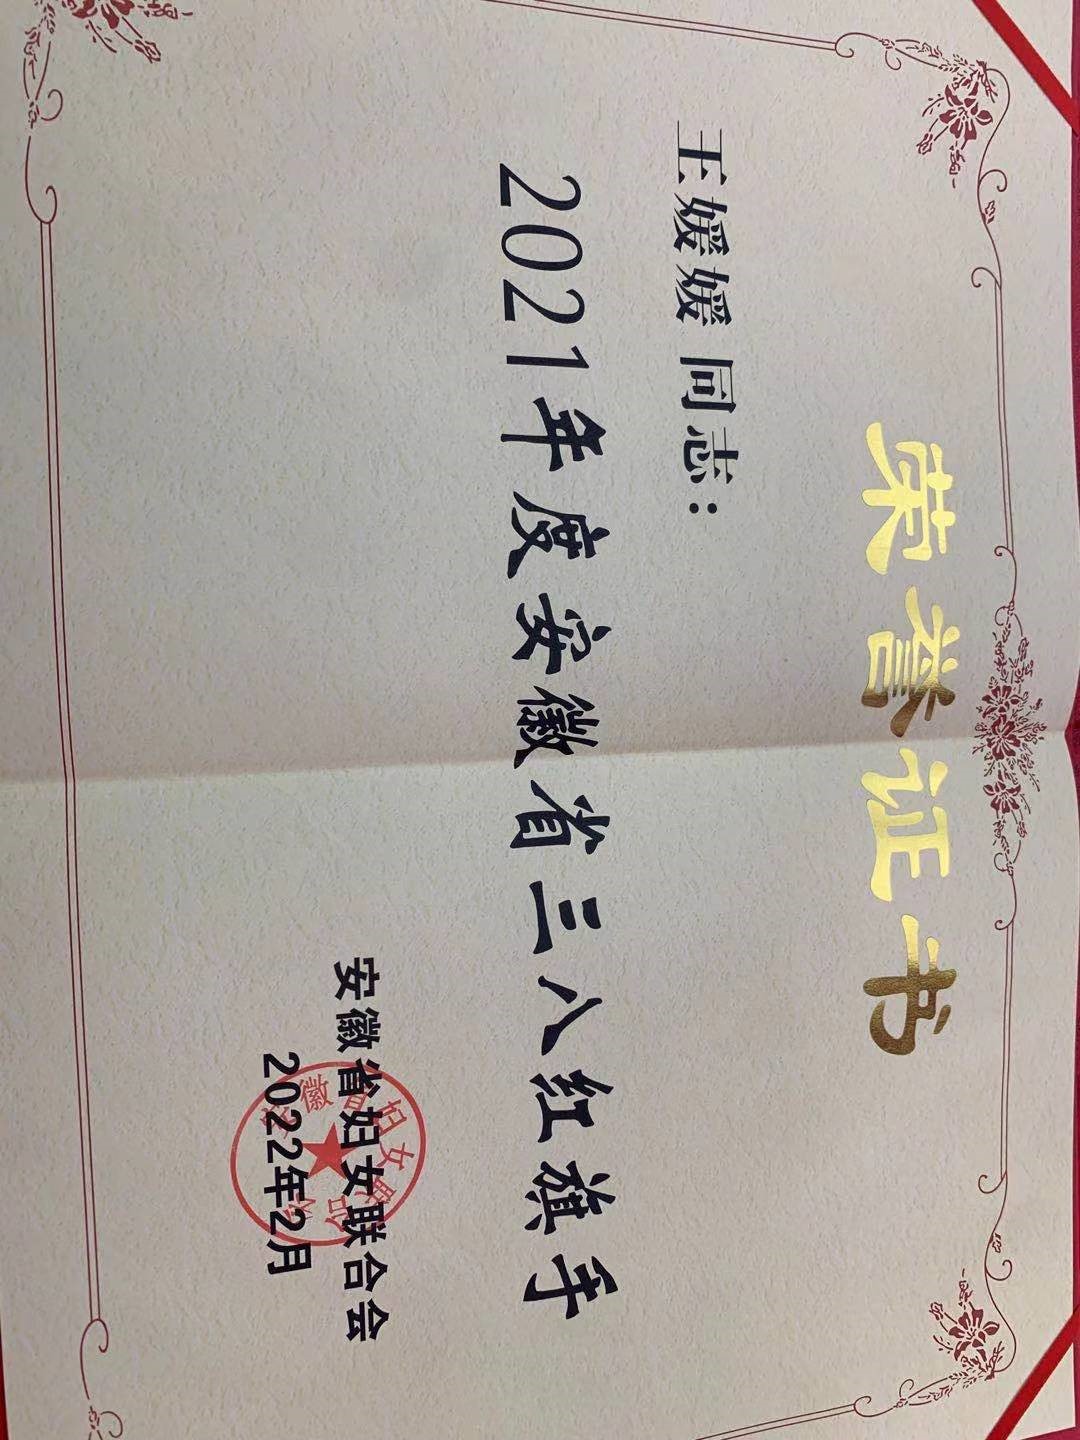 荣誉证书
王媛媛 同志：
2021年度安徽省三八红旗手
安徽省妇女联合会
安徽省妇女联合会
2022年2月